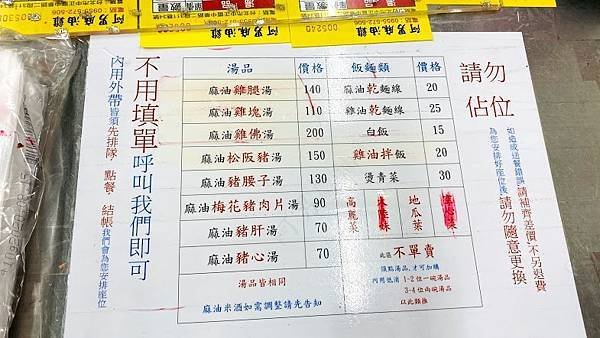 阿男麻油雞
005240
不用填單呼叫我們即可
內用外帶皆須先排隊、點餐、結帳我們會為您安排座位
湯品 價格 飯麵類 價格
麻油雞腿湯 140 麻油乾麵線 20
麻油雞塊湯 110 雞油乾麵線 25
麻油雞佛湯 200 白飯 15
麻油松阪豬湯 150 雞油拌飯 20
麻油豬腰子湯 130 燙青菜 30
麻油梅花豬肉片湯 90
麻油豬肝湯 70
麻油豬心湯 70
高麗菜
地瓜葉
湯品皆相同
麻油米酒如需調整請先告知
此區不單賣
須點湯品,才可加購
內用低消 1-2 位一碗湯品
3-4 位兩碗湯品
以此類推
請勿佔位
如造成送餐錯誤請補齊差價不另退費
為您安排好座位後請勿隨意更換